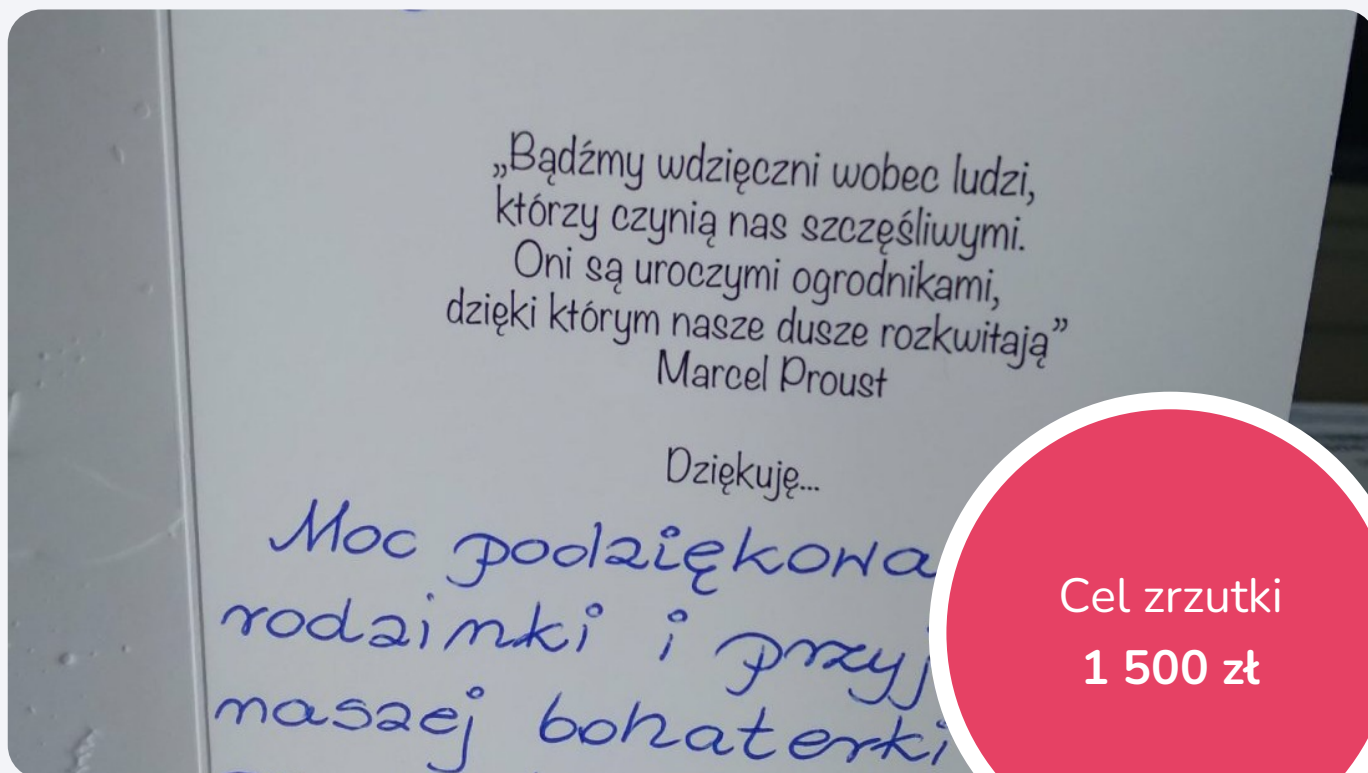 „Bądźmy wdzięczni wobec ludzi,
którzy czynią nas szczęśliwymi.
Oni są uroczymi ogrodnikami,
dzięki którym nasze dusze rozkwitają”
Marcel Proust
Dziękuję...
Moc podziękowa
rodzinki i przyj
naszej bohaterki
Cel zrzutki
1 500 zł